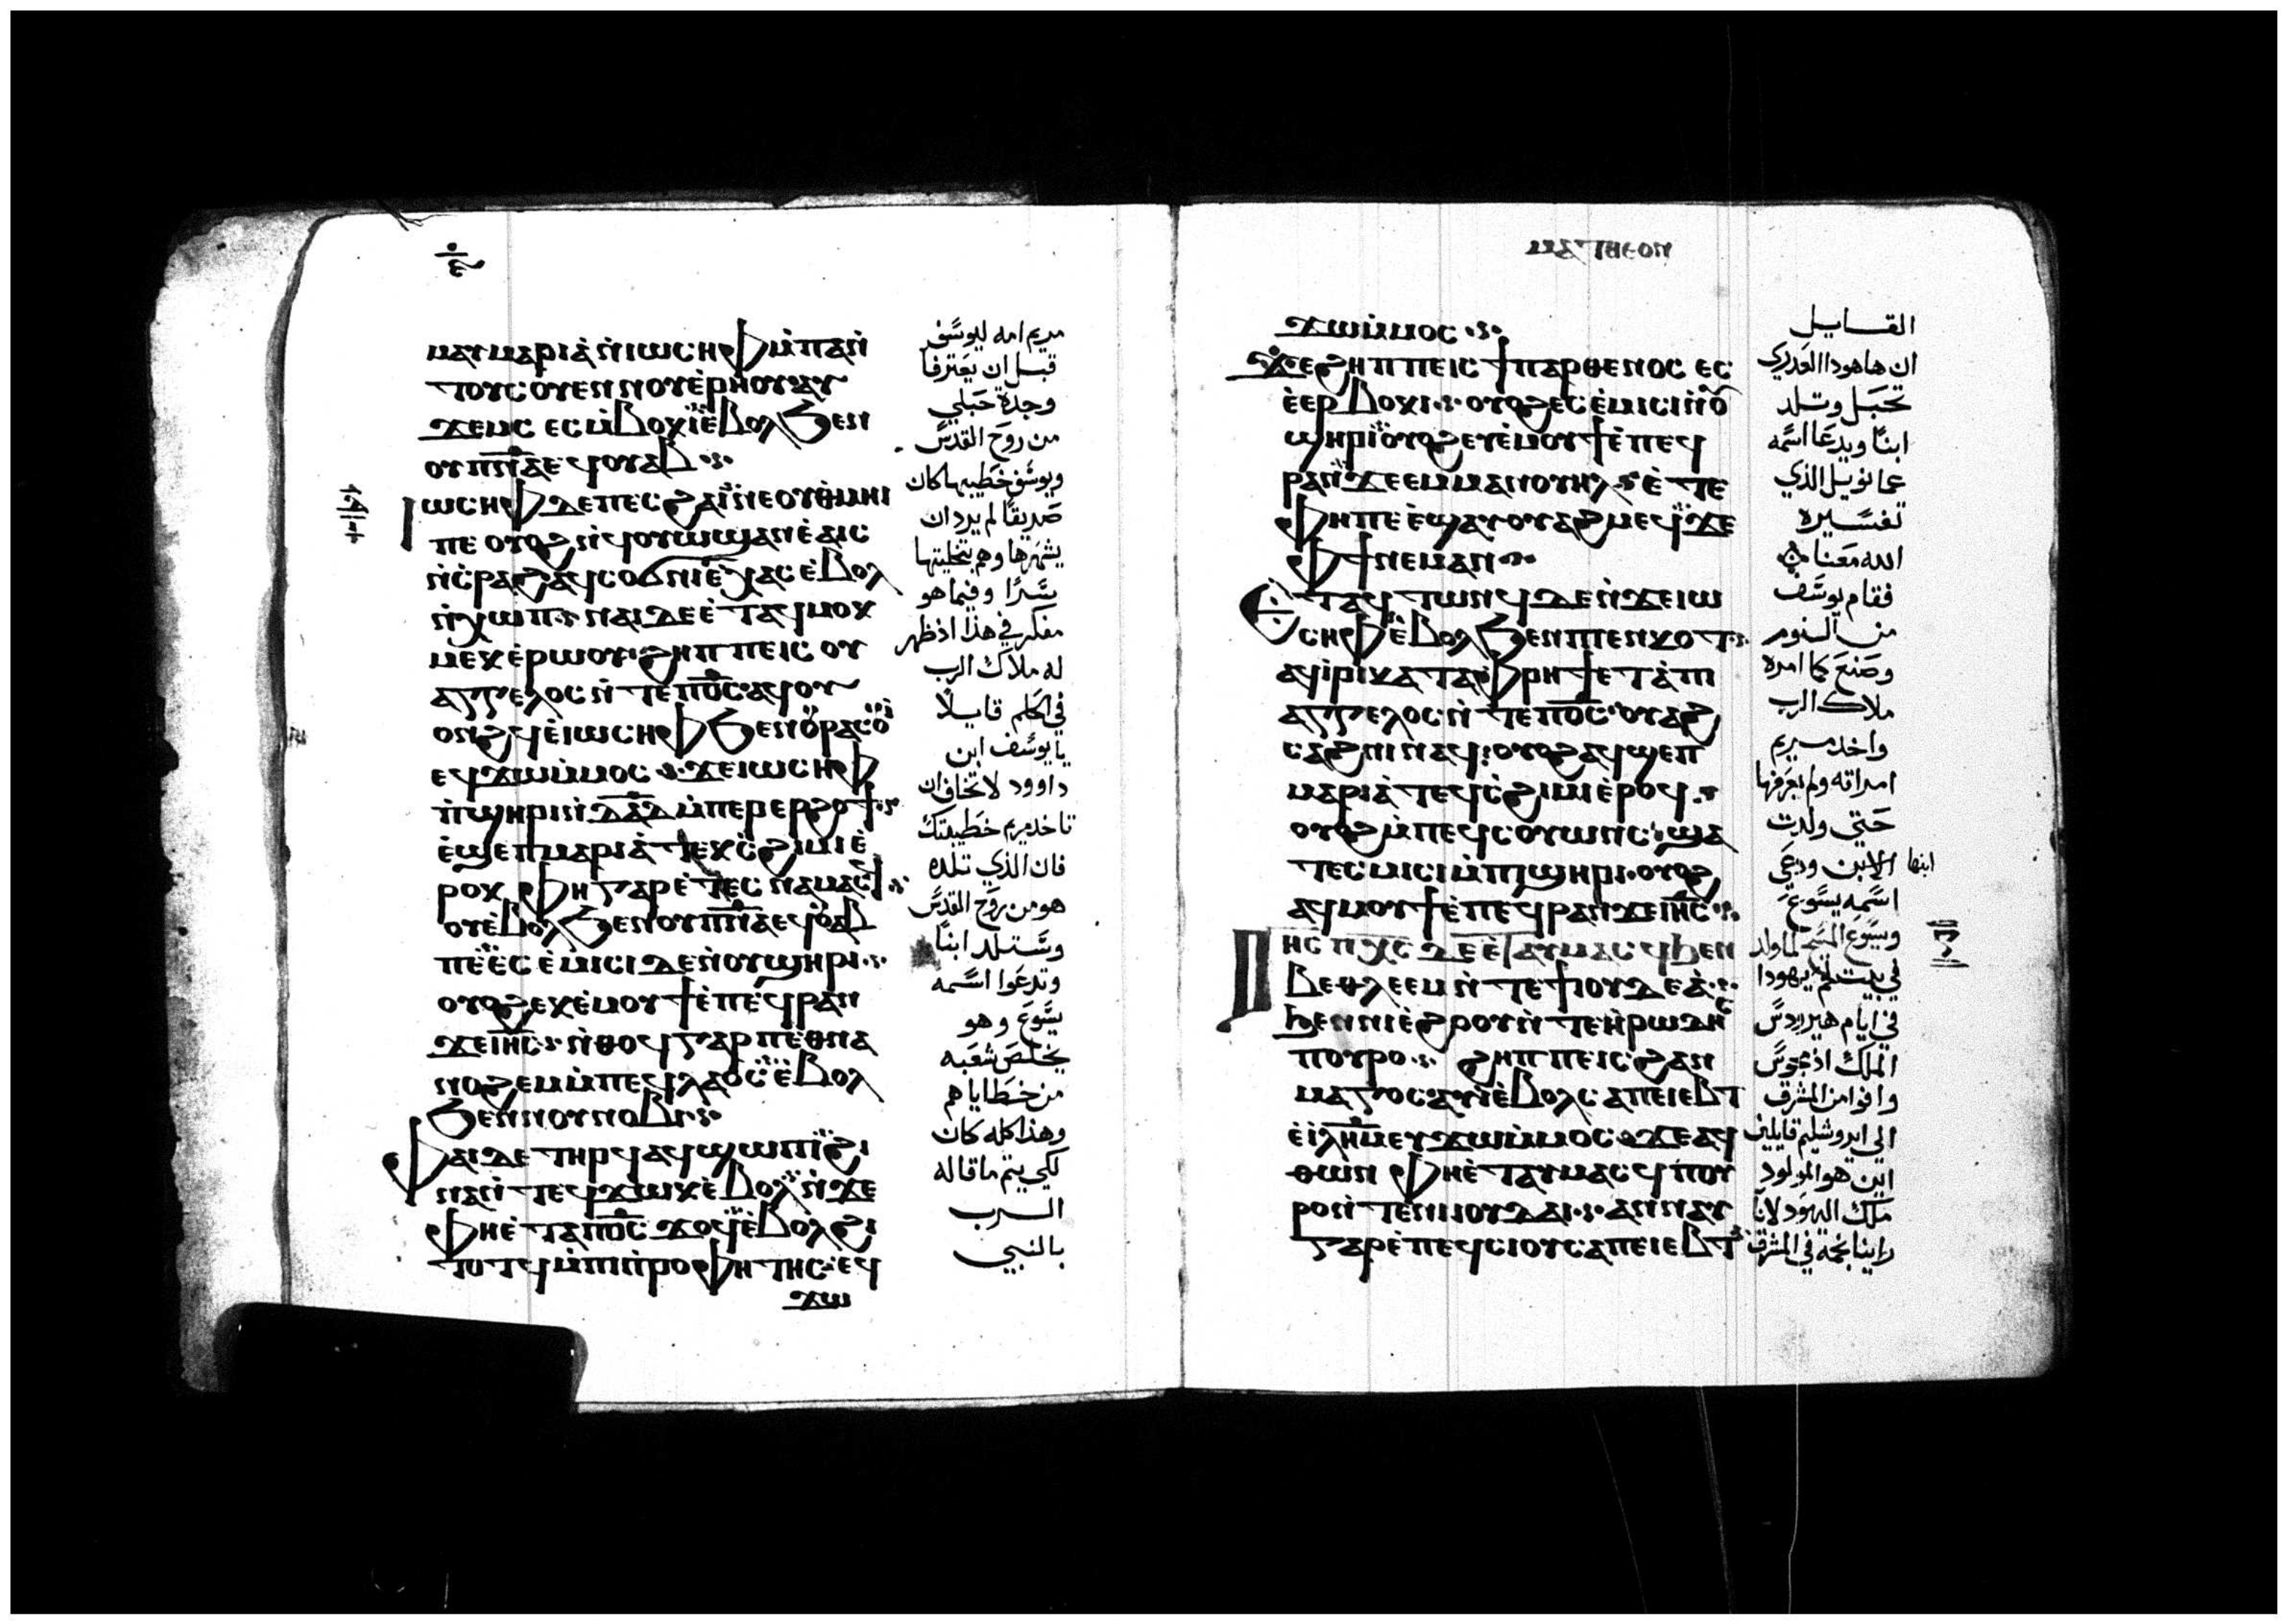 ⲙⲁⲩⲙⲁⲣⲓⲁ̀ⲛ̀ⲓⲱⲥⲏⲫⲙ̀ⲡⲁⲛ̀
ⲧⲟⲩⲥⲟⲩⲉⲛⲛⲟⲩⲉ̀ⲣⲏⲟⲩⲁⲩ
ϫⲉⲙⲥ ⲉⲥⲙ̀ⲃⲟⲕⲓⲉ̀ⲃⲟⲗϧⲉⲛ
ⲟⲩⲡ̅ⲛ̅ⲁ̅ⲉϥⲟⲩⲁⲃ
ⲓⲱⲥⲏⲫⲇⲉⲡⲉⲥϩⲁⲓⲛⲉⲟⲩⲑⲙⲏⲓ
ⲡⲉ ⲟⲩⲟϩⲛ̀ϥⲟⲩⲱϣⲁⲛⲉ̀ⲁⲓⲥ
ⲛ̀ⲥ̀ⲣⲁϩⲁϥⲥⲟϭⲛⲓⲉ̀ⲭⲁⲥⲉ̀ⲃⲟⲗ
ⲛ̀ⲭⲱⲡ ⲛⲁⲓⲇⲉⲉ̀ⲧⲁϥⲙⲟⲕ
ⲙⲉⲕⲉ̀ⲣⲱⲟⲩ ϩⲏⲡⲡⲉⲓⲥ ⲟⲩ
ⲁⲅⲅⲉⲗⲟⲥ ⲛ̀ⲧⲉⲡⲟ̅ⲥ̅ ⲁϥⲟⲩ
ⲟⲛϩϥⲉ̀ⲓⲱⲥⲏⲫϧⲉⲛⲟⲩⲣⲁⲥⲟⲩⲓ̀
ⲉϥϫⲱⲙ̀ⲙⲟⲥ ϫⲉⲓⲱⲥⲏⲫ
ⲡ̀ϣⲏⲣⲓⲛ̀ⲇ̅ⲁ̅ⲇ̅ⲙ̀ⲡⲉⲣⲉⲣϩⲟϯ
ⲉ̀ϣⲉⲡⲙⲁⲣⲓⲁ̀ⲧⲉⲕⲥ̀ϩⲓⲙⲓⲉ̀
ⲣⲟⲕ ⲫⲏⲅⲁⲣⲉ̀ⲧⲉⲥⲛⲁⲙⲁⲥϥ
ⲟⲩⲉ̀ⲃⲟⲗϧⲉⲛⲟⲩⲡ̅ⲛ̅ⲁ̅ⲉϥⲟⲩⲁⲃ
ⲡⲉⲉ̀ⲥⲉ̀ⲙⲓⲥⲓⲇⲉⲛ̀ⲟⲩϣⲏⲣⲓ
ⲟⲩⲟϩⲉⲕⲉ̀ⲙⲟⲩϯⲉ̀ⲡⲉϥⲣⲁⲛ
ϫⲉⲓⲏ̅ⲥ̅ ⲛ̀ⲑⲟϥⲅⲁⲣⲡⲉⲑⲛⲁ
ⲛⲟϩⲉⲙⲙ̀ⲡⲉϥⲗⲁⲟⲥⲉ̀ⲃⲟⲗ
ϧⲉⲛⲛⲟⲩⲛⲟⲃⲓ
ⲫⲁⲓⲇⲉⲧⲏⲣϥⲁϥϣⲱⲡⲓϩⲓ
ⲛⲁⲛ̀ⲧⲉϥϫⲱⲕⲉ̀ⲃⲟⲗⲛ̀ϫⲉ
ⲫⲏⲉ̀ⲧⲁⲡⲟ̅ⲥ̅ ϫⲟϥⲉ̀ⲃⲟⲗϩⲓ
ⲧⲟⲧϥⲙ̀ⲡⲓⲡ̀ⲣⲟⲫⲏⲧⲏⲥ ⲉϥ
ϫⲱ
مريم امه ليوسف
قبل ان يعترفا
وجدة حبلي
من روح القدس
ويوسف خطيبها كان
صديقا لم يرد ان
يشهرها وهم بتخليتها
سرا وفيما هو
مفكر في هذا اذ ظهر
له ملاك الرب
في الحلم قايلا
يا يوسف ابن
داوود لا تخاف ان
تاخد مريم خطيبتك
فان الذي تلده
هو من روح القدس
وستلد ابنا
وتدعوا اسمه
يسوع وهو
يخلص شعبه
من خطاياهم
وهذا كله كان
لكي يتم ما قاله
الرب
بالنبي
ⲙⲁⲧⲑⲉⲟⲛ
ϫⲱⲙ̀ⲙⲟⲥ
ϫⲉϩⲏⲡⲡⲉⲓⲥ ϯⲡⲁⲣⲑⲉⲛⲟⲥ ⲉⲥ
ⲉ̀ⲉⲣⲃⲟⲕⲓ ⲟⲩⲟϩⲉⲥⲉ̀ⲙⲓⲥⲓⲛ̀ⲟⲩ
ϣⲏⲣⲓⲟⲩⲟϩⲉⲩⲉ̀ⲙⲟⲩϯⲉ̀ⲡⲉϥ
ⲣⲁⲛϫⲉⲉⲙⲙⲁⲛⲟⲩⲏⲗ ⲉ̀ⲧⲉ
ⲫⲏⲡⲉ ⲉ̀ϣⲁⲩⲟⲩⲁϩⲙⲉϥϫⲉ
ⲫϯⲛⲉⲙⲁⲛ
ⲉ̀ⲧⲁϥⲧⲱⲛϥⲇⲉⲛ̀ϫⲉⲓⲱ
ⲥⲏⲫⲉ̀ⲃⲟⲗϧⲉⲛⲡⲉⲛⲕⲟⲧ
ⲁϥⲓ̀ⲣⲓⲕⲁⲧⲁⲫⲣⲏϯⲉⲧⲁⲡⲓ
ⲁⲅⲅⲉⲗⲟⲥ ⲛ̀ⲧⲉⲡⲟ̅ⲥ̅ ⲟⲩⲁϩ
ⲥⲁϩⲛⲓⲛⲁϥ ⲟⲩⲟϩⲁϥϣⲉⲡ
ⲙⲁⲣⲓⲁ̀ⲧⲉϥⲥ̀ϩⲓⲙⲓⲉ̀ⲣⲟϥ
ⲟⲩⲟϩⲙ̀ⲡⲉϥⲥⲟⲩⲱⲛⲥ ϣⲁ
ⲧⲉⲥⲙⲓⲥⲓⲙ̀ⲡϣⲏⲣⲓ ⲟⲩⲟϩ
ⲁϥⲙⲟⲩϯⲉ̀ⲡⲉϥⲣⲁⲛϫⲉⲓⲏ̅ⲥ̅
ⲓⲏⲥ ⲡⲭⲥ ⲇⲉⲉ̀ⲧⲁⲩⲙⲁⲥϥϧⲉⲛ
ⲃⲉⲑⲗⲉⲉⲙⲛ̀ⲧⲉϯⲓⲟⲩⲇⲉⲁ̀
ϧⲉⲛⲛⲓⲉ̀ϩⲟⲟⲩⲛ̀ⲧⲉⲏ̀ⲣⲱⲇⲏⲥ
ⲡⲟⲩⲣⲟ ϩⲏⲡⲡⲉⲓⲥ ϩⲁⲛ
ⲙⲁⲅⲟⲥⲁⲩⲓ̀ⲉ̀ⲃⲟⲗⲥⲁⲡⲉⲓⲉⲃⲧ
ⲉ̀ⲓ̀ⲗⲏ̅ⲙ̅ⲉⲩϫⲱⲙ̀ⲙⲟⲥ ϫⲉⲁϥ
ⲑⲱⲛ ⲫⲏⲉ̀ⲧⲁⲩⲙⲁⲥϥ ⲡⲟⲩ
ⲣⲟⲛ̀ⲧⲉⲛⲓⲓⲟⲩⲇⲁⲓ ⲁⲛⲛⲁⲩ
ⲅⲁⲣⲉ̀ⲡⲉϥⲥⲓⲟⲩⲥⲁⲡⲉⲓⲉⲃⲧ
القايل
ان هاهودا العدري
تحبل وتلد
ابنا ويدعا اسمه
عمانويل الذي
تفسيره
الله معنا
فقام يوسف
من النوم
وصنع كما امره
ملاك الرب
واخد مريم
امراته ولم يعرفها
حتي ولدت
ابنها الابن ودعي
اسمه يسوع
ويسوع المسيح لما ولد
في بيت لحم يهودا
في ايام هيرودس
الملك اذ مجوس
وافوا من المشرق
الي ايروشليم قايلين
اين هو المولود
ملك اليهود لانا
راينا نجمه في المشرق